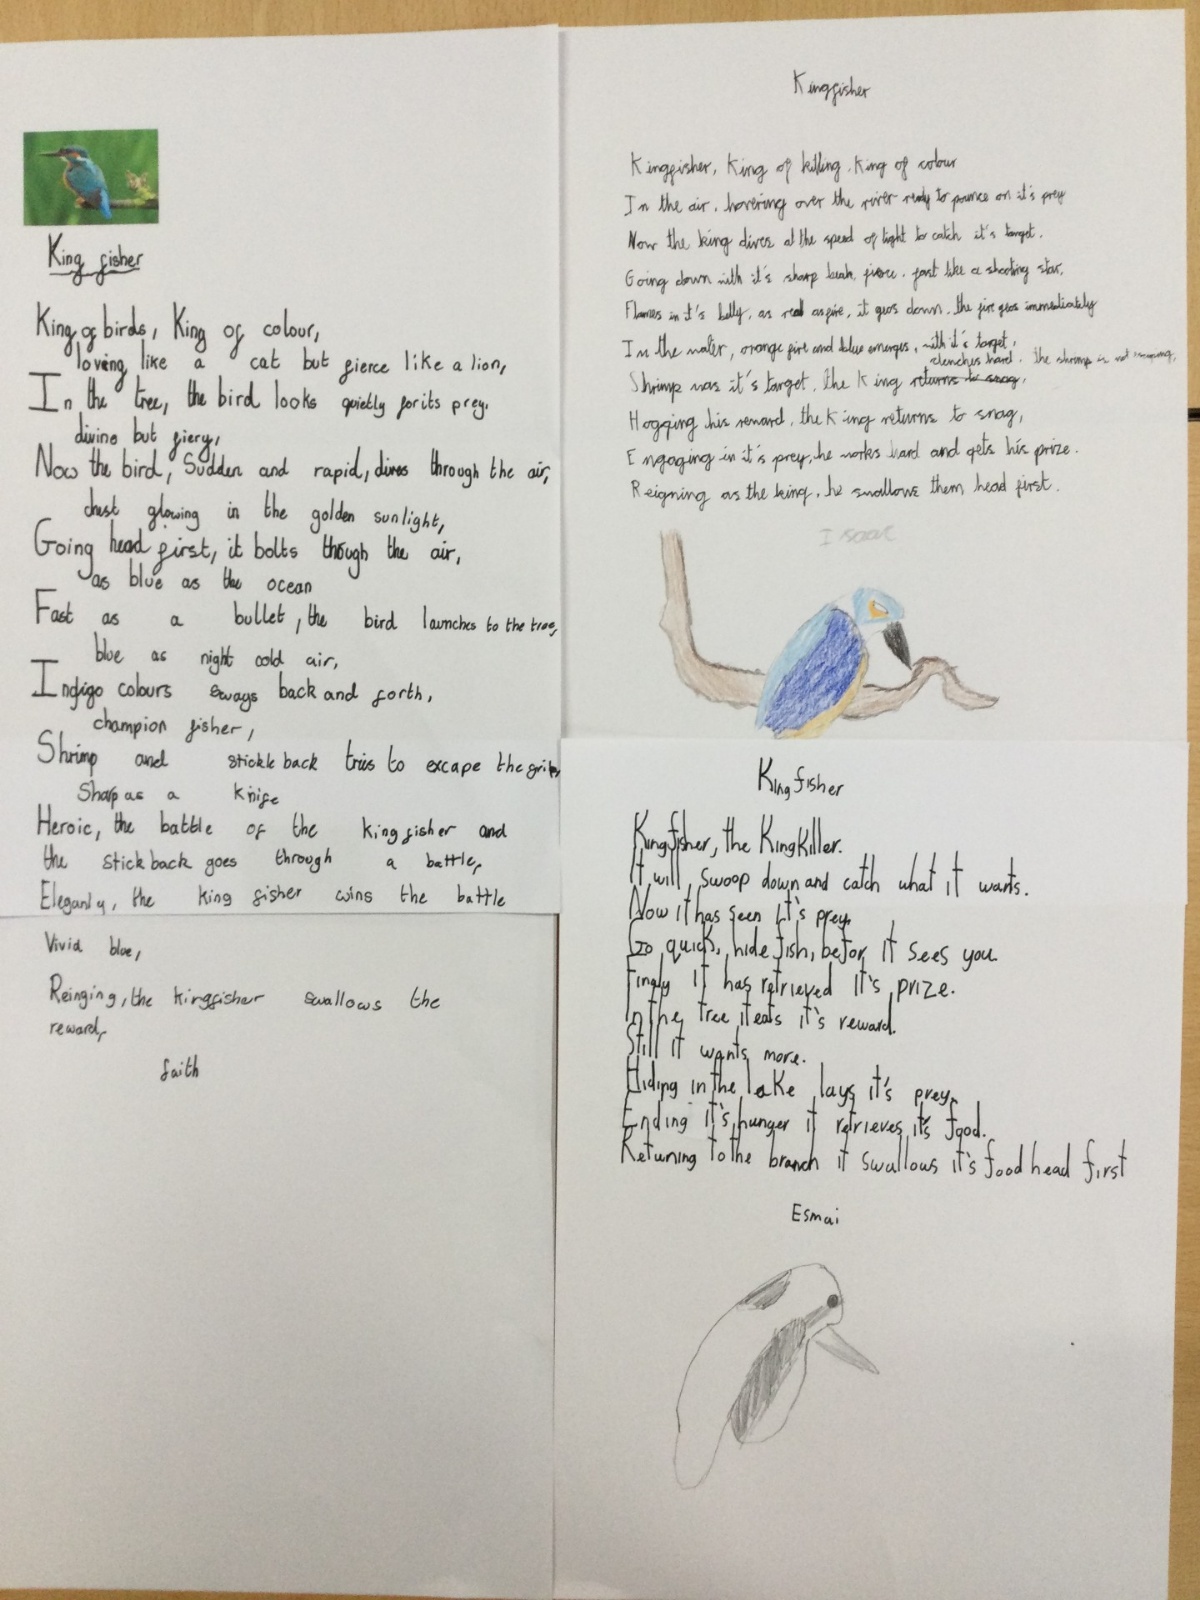 King fisher
King of birds, King of colour,
loving like a cat but fierce like a lion,
In the tree, the bird looks quietly for its prey.
divine but fiery,
Now the bird, Sudden and rapid, dives through the air,
chest glowing in the golden sunlight,
Going head first, it bolts though the air,
as blue as the ocean
Fast as a bullet, the bird launches to the tree,
blue as night cold air,
Indigo colours sways back and forth,
champion fisher,
Shrimp and stickle back tries to excape the grip,
Sharp as a knife
Heroic, the battle of the king fisher and
the stick back goes through a battle,
Eleganly, the king fisher wins the battle
Vivid blue,
Reinging, the kingfisher swallows the
reward,
faith
Kingfisher
Kingfisher, King of killing, King of colour
In the air, hovering over the river ready to pounce on it's prey
Now the king dives at the speed of light to catch it's target.
Going down with it's sharp beak, fierce, fast like a shooting star,
Flames in it's belly, as red as fire, it goes down, the fire goes immediately
In the water, orange fire and blue emerges, with it's target,
clenches hard. the shrimp is not
Shrimp was it's target, the King returns to snag,
Hogging his reward, the King returns to snag,
Engaging in it's prey, he works hard and gets his prize.
Reigning as the king, he swallows them head first.
Isaac
Kingfisher
Kingfisher, the King Killer.
It will swoop down and catch what it wants.
Now it has seen it's prey.
Go quick, hide fish, befor it sees you.
Finaly it has retrieved it's prize.
In the tree it eats it's reward.
Still it wants more.
Hiding in the lake lays it's prey.
Ending it's hunger it retrieves it's food.
Returning to the branch it swallows it's food head first
Esmai